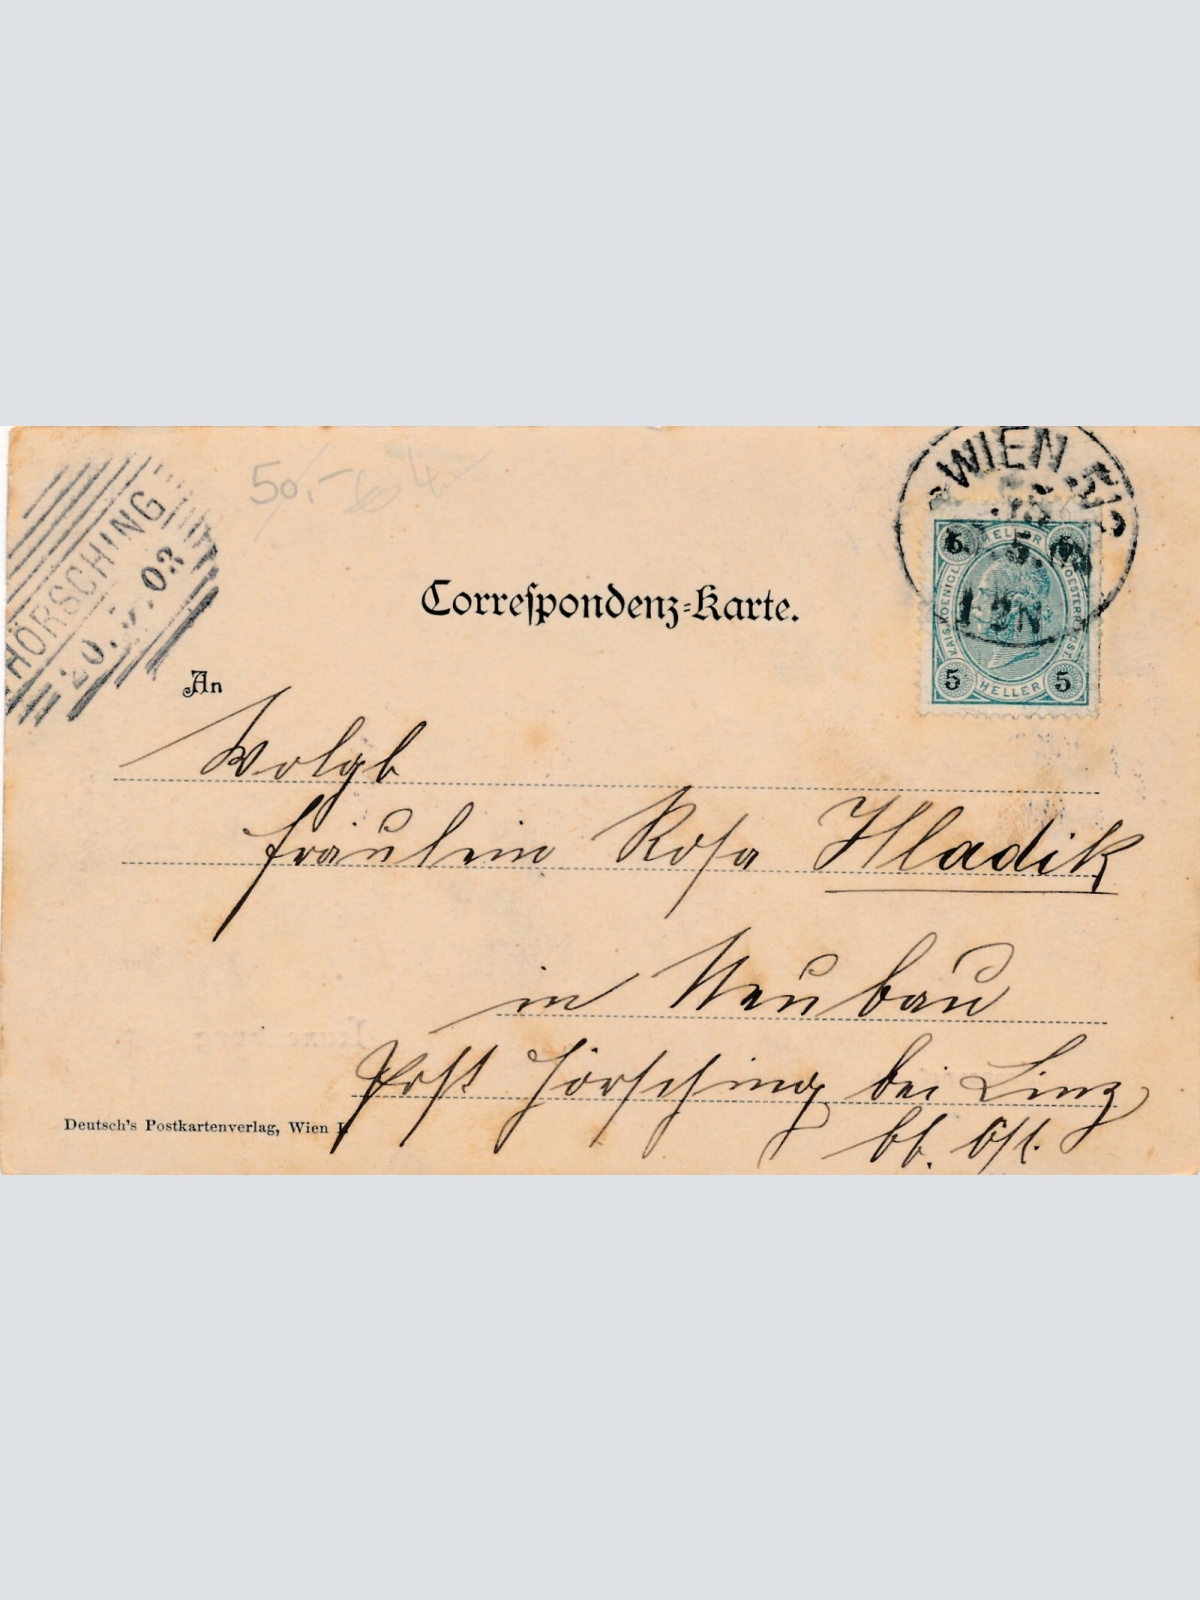 50,-
WIEN
HÖRSCHING
20.5.03
Correspondenz-Karte.
HELLER
5 5
KAIS. KOENIGL. OESTERR. POST
1-2N
5 5
HELLER
An
Wolgb
Fräulein Rosa Hladik
in Neubau
Post Hörsching bei Linz
Deutsch's Postkartenverlag, Wien I.
Öst.